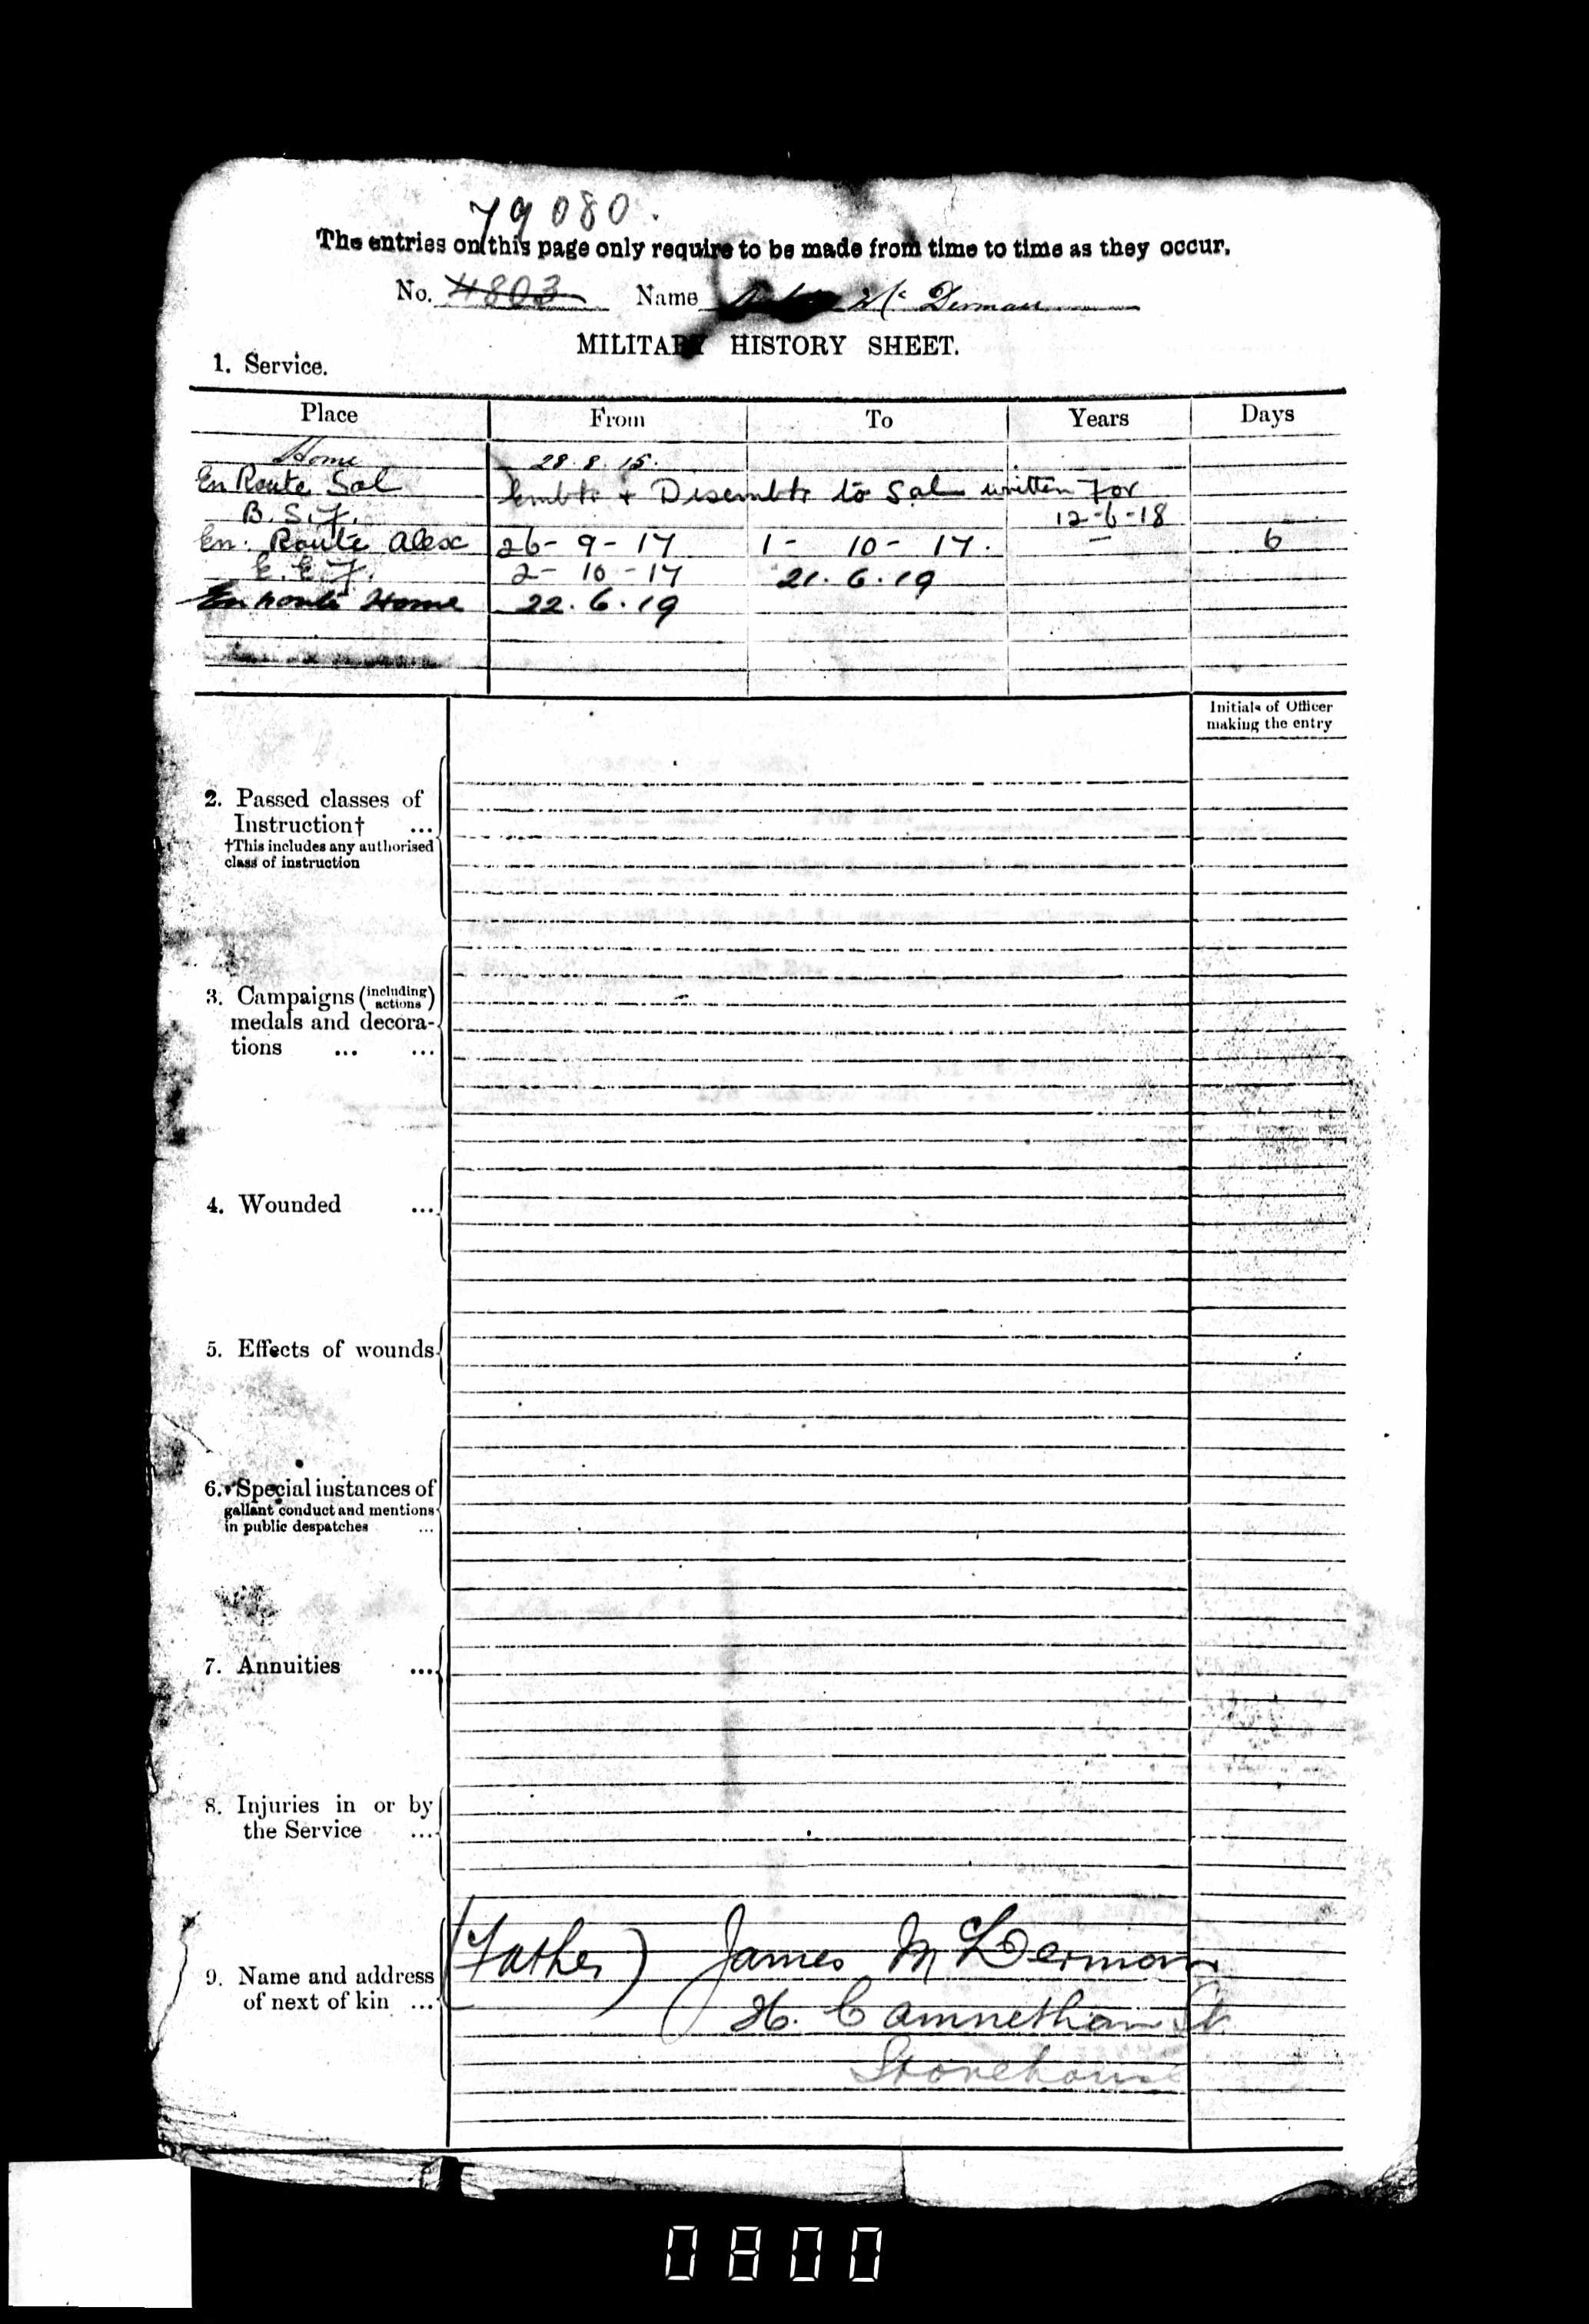 79080.
The entries on this page only require to be made from time to time as they occur.
No. 4803 Name Mc Dermott
MILITARY HISTORY SHEET.
1. Service.
Place From To Years Days
Home 28.8.15.
En Route Sal Embk + Disembk to Sal written for
B.S.F. 12-6-18
En. Route Alex 26-9-17 1-10-17. — 6
E.E.F. 2-10-17 21.6.19
En route Home 22.6.19
Initials of Officer
making the entry
2. Passed classes of
Instruction† ...
†This includes any authorised
class of instruction
3. Campaigns (including actions)
medals and decora-
tions ... ...
4. Wounded ...
5. Effects of wounds
6. Special instances of
gallant conduct and mentions
in public despatches ...
7. Annuities ...
8. Injuries in or by
the Service ...
(Father) James McDermott
9. Name and address
of next of kin ...
Camnethan St.
Stonehouse
0800